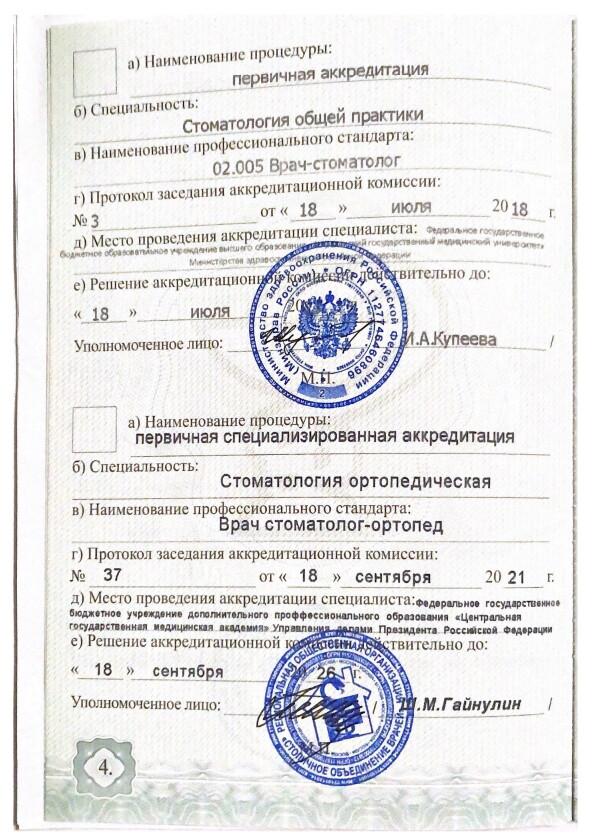 а) Наименование процедуры:
первичная аккредитация
б) Специальность:
Стоматология общей практики
в) Наименование профессионального стандарта:
02.005 Врач-стоматолог
г) Протокол заседания аккредитационной комиссии:
№ 3 от « 18 » июля 2018 г.
д) Место проведения аккредитации специалиста: Федеральное государственное
бюджетное образовательное учреждение высшего образования государственный медицинский университет»
Министерства Федерации
е) Решение аккредитационной комиссии действительно до:
« 18 » июля 20
Уполномоченное лицо: И.А.Купеева /
Министерство здравоохранения Российской Федерации
(Минздрав России) * ОГРН 1127746460896
М.П.
2
а) Наименование процедуры:
первичная специализированная аккредитация
б) Специальность:
Стоматология ортопедическая
в) Наименование профессионального стандарта:
Врач стоматолог-ортопед
г) Протокол заседания аккредитационной комиссии:
№ 37 от « 18 » сентября 20 21 г.
д) Место проведения аккредитации специалиста: Федеральное государственное
бюджетное учреждение дополнительного проффессионального образования «Центральная
государственная медицинская академия» Управления делами Президента Российской Федерации
е) Решение аккредитационной комиссии действительно до:
« 18 » сентября 20 26 г.
Уполномоченное лицо: / Ш.М.Гайнулин /
РЕГИОНАЛЬНАЯ ОБЩЕСТВЕННАЯ ОРГАНИЗАЦИЯ
«СТОЛИЧНОЕ ОБЪЕДИНЕНИЕ ВРАЧЕЙ»
М.П.
4.